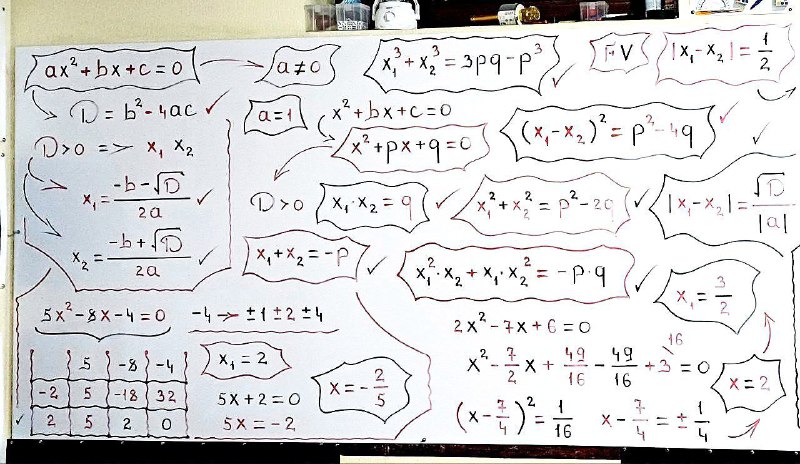 ax² + bx + c = 0
a ≠ 0
x₁³ + x₂³ = 3pq - p³
FV
|x₁ - x₂| = 1/2
D = b² - 4ac
a = 1
x² + bx + c = 0
x² + px + q = 0
(x₁ - x₂)² = p² - 4q
D > 0 => x₁ x₂
x₁ = (-b - √D)/2a
D > 0
x₁ · x₂ = q
x₁² + x₂² = p² - 2q
|x₁ - x₂| = √D/|a|
x₂ = (-b + √D)/2a
x₁ + x₂ = -p
x₁² · x₂ + x₁ · x₂² = -p · q
x₁ = 3/2
5x² - 8x - 4 = 0
-4 → ±1 ±2 ±4
5 -8 -4
-2 5 -18 32
2 5 2 0
x₁ = 2
5x + 2 = 0
5x = -2
x = -2/5
2x² - 7x + 6 = 0
16
x² - 7/2 x + 49/16 - 49/16 + 3 = 0
(x - 7/4)² = 1/16
x - 7/4 = ± 1/4
x = 2